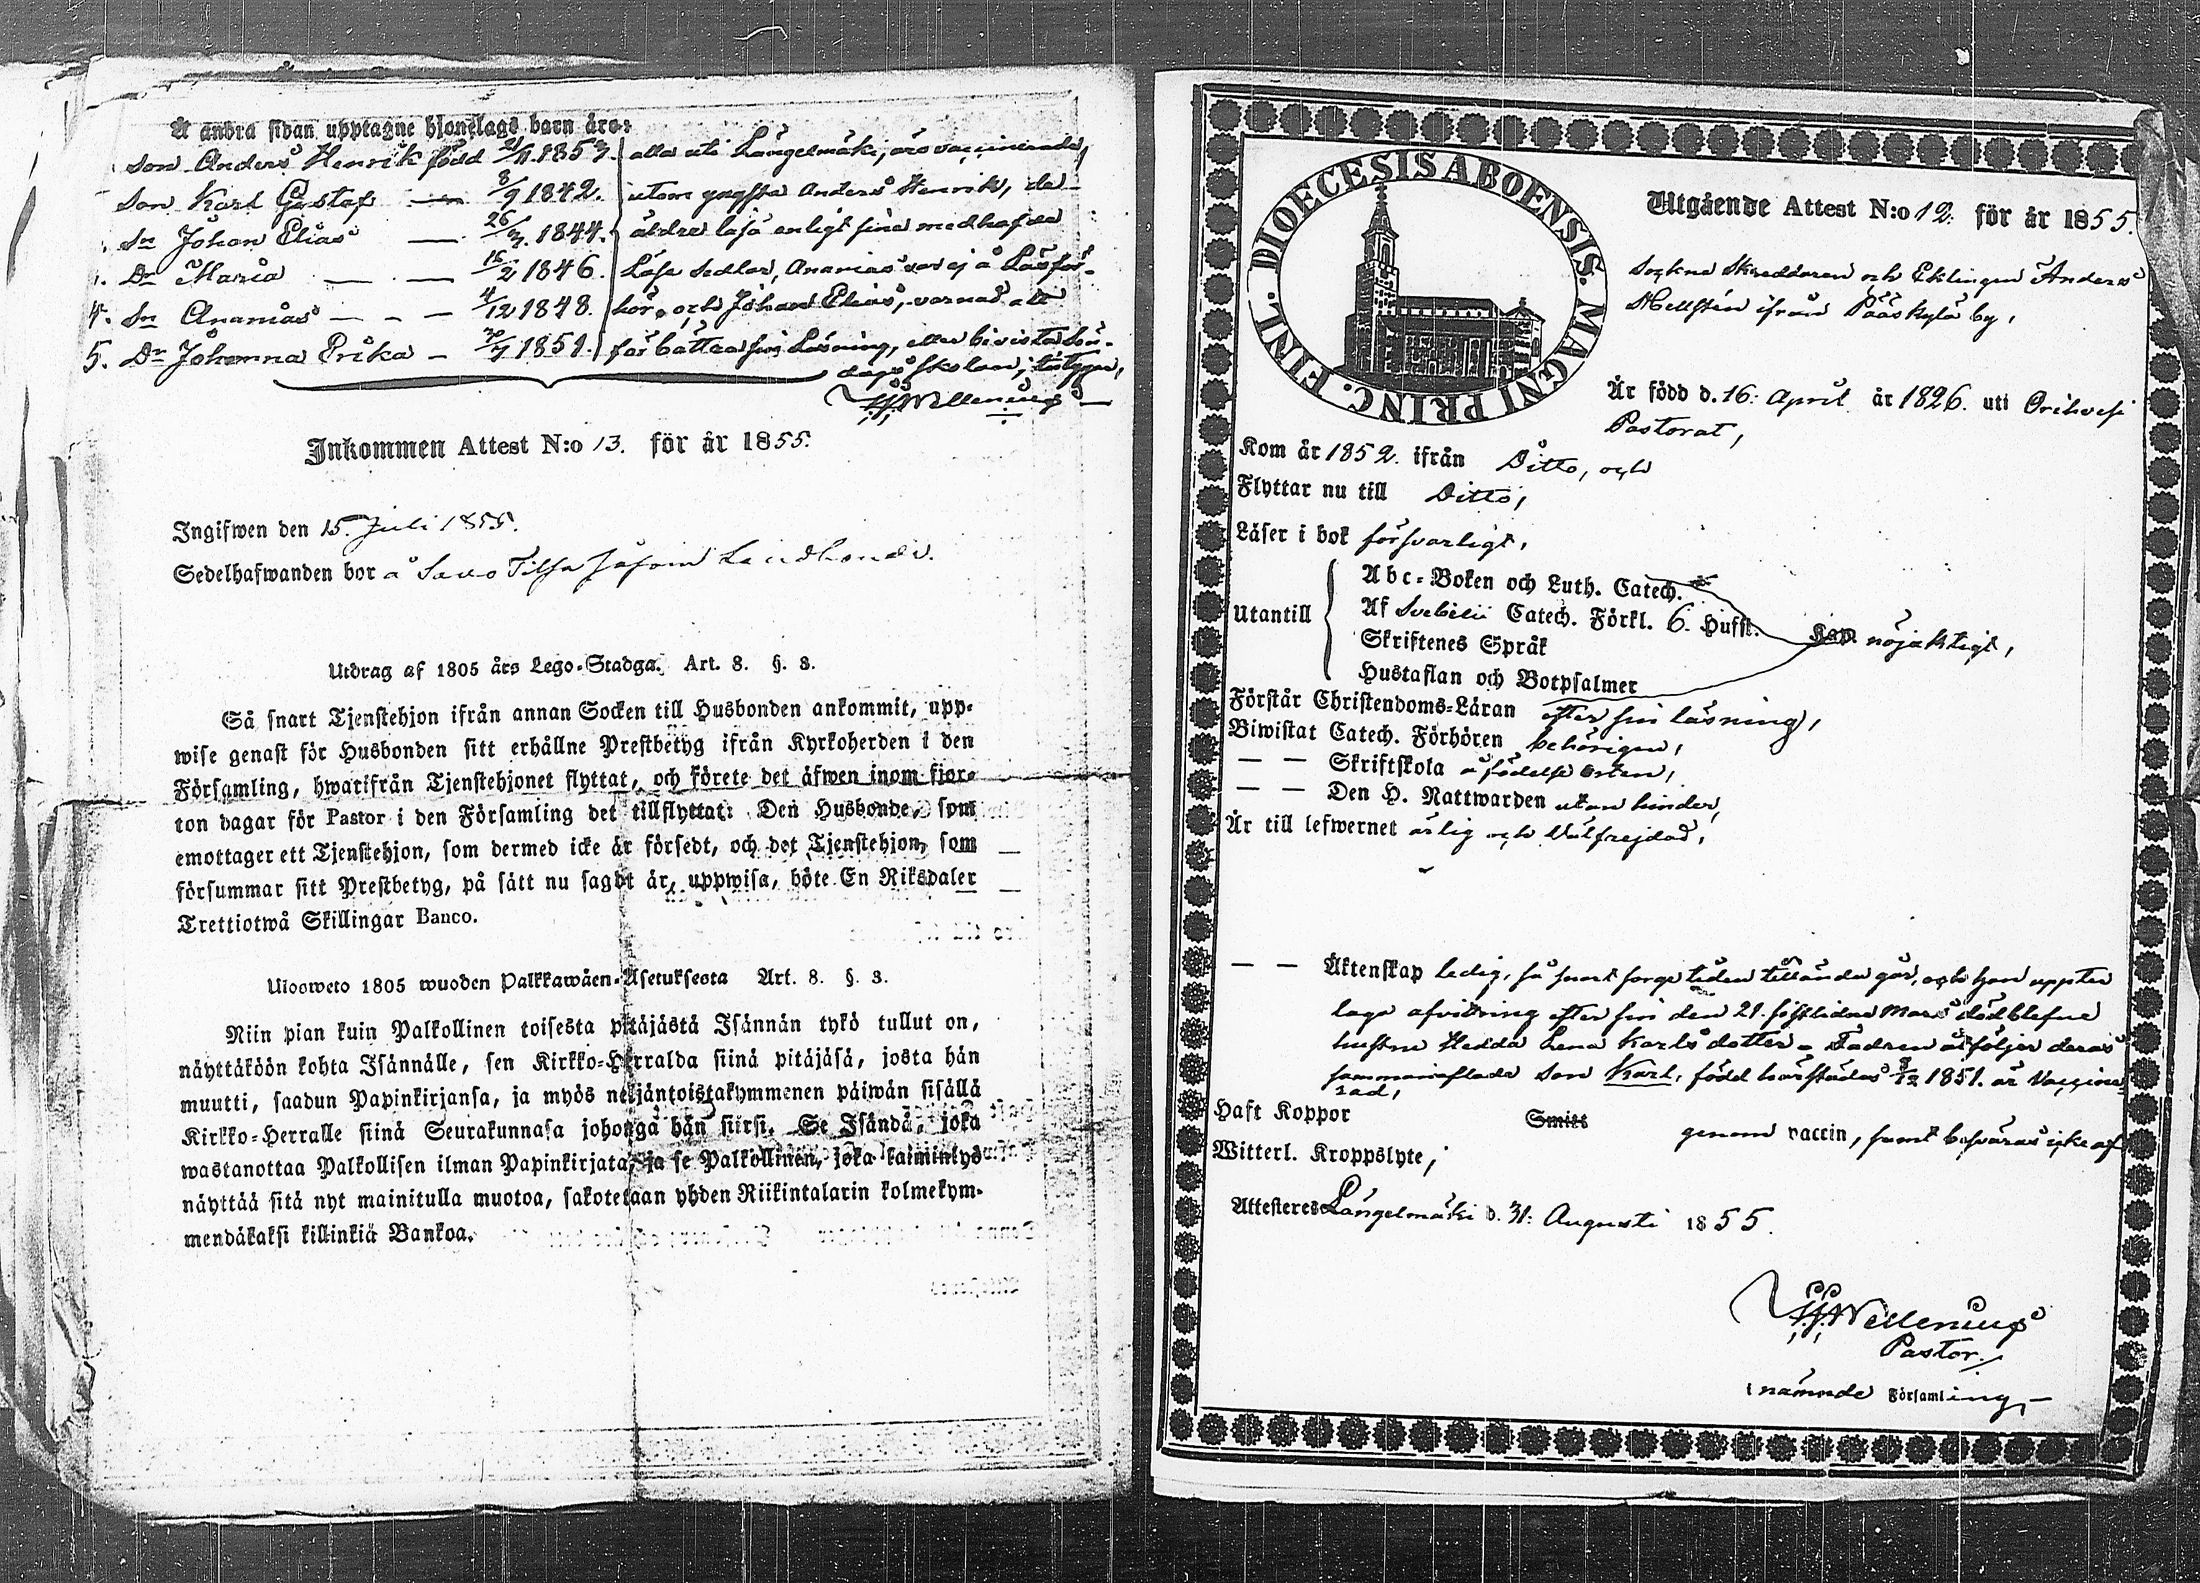 Å andra sidan upptagne hjonelags barn äro:
Son Anders Henrik född 2/11 1853. alla uti Längelmäki, äro vaccinerade,
Son Karl Gustaf — 8/9 1842. utom yngsta Anders Henrik, de
Sn Johan Elias — 26/3 1844. äldre läsa enligt sine medhafde
Dr Maria — — 16/2 1846. Läse sedlar, Ananias var ej å Läsför-
4. Sn Ananias — - — 4/12 1848. hör, och Johan Elias, varnad att
5. Dr Johanna Erika — 1851. förbättra sin Läsning, eller bivista Sön-
dags skolan, betygar,
Wellenius
Inkommen Attest N:o 13. för år 1855.
Ingifwen den 15. Juli 1855.
Sedelhafwanden bor å Savo Tilsa såsom Landbonde.
Utdrag af 1805 års Lego-Stadga. Art. 8. §. 3.
Så snart Tjenstehjon ifrån annan Socken till Husbonden ankommit, upp-
wise genast för Husbonden sitt erhållne Prestbetyg ifrån Kyrkoherden i den
Församling, hwarifrån Tjenstehjonet flyttat, och förete det äfwen inom fjor-
ton dagar för Pastor i den Församling det tillflyttat: Den Husbonde, som
emottager ett Tjenstehjon, som dermed icke är försedt, och det Tjenstehjon, som
försummar sitt Prestbetyg, på sätt nu sagdt är, uppwisa, böte En Riksdaler
Trettiotwå Skillingar Banco.
Ulosweto 1805 wuoden Palkkawäen-Asetuksesta Art. 8. §. 3.
Niin pian kuin Palkollinen toisesta pitäjästä Isännän tykö tullut on,
näyttäköön kohta Isännälle, sen Kirkko-Herralda siinä pitäjäsä, josta hän
muutti, saadun Papinkirjansa, ja myös neljäntoistakymmenen päiwän sisällä
Kirkko-Herralle siinä Seurakunnasa johonga hän siirsi. Se Isändä, joka
wastanottaa Palkollisen ilman Papinkirjata, ja se Palkollinen, joka laiminlyö
näyttää sitä nyt mainitulla muotoa, sakotetaan yhden Riikintalarin kolmekym-
mendäkaksi killinkiä Bankoa.
DIOECESIS ABOENSIS. MAGNI PRINC. FINL.
Utgående Attest N:o 12. för år 1855.
Sockne Skreddaren och Enklingen Anders
Hellstén ifrån Pääskylä by,
Är född d. 16: April år 1826. uti Orihvesi
Pastorat,
Kom år 1852. ifrån Ditto, och
Flyttar nu till Ditto,
Läser i bok försvarligt,
Utantill
Abc-Boken och Luth. Catech.
Af Svebelii Catech. Förkl. 6. Hufst. Kap. nöjaktigt,
Skriftenes Språk
Hustaflan och Botpsalmer
Förstår Christendoms-Läran efter sin läsning,
Biwistat Catech. Förhören behörigen,
— — Skriftskola å födelse orten,
— — Den H. Nattwarden utan hinder,
Är till lefwernet ärlig och Välfrejdad,
— — Äktenskap ledig, så snart sorge tiden tilländagår, och han uppter
laga afvittring efter sin den 21. sistlidne Mars dödblefne
hustru Hedda Lena Karlsdotter - Fadren åtföljer deras
sammanaflade son Karl, född härstädes 1851. är Vaccine-
rad,
Haft Koppor Smitt genom vaccin, samt besväras icke af
Witterl. Kroppslyte,
Attesteres Längelmäki d. 31: Augusti 1855.
Wellenius
Pastor.
i nämnde Församling,